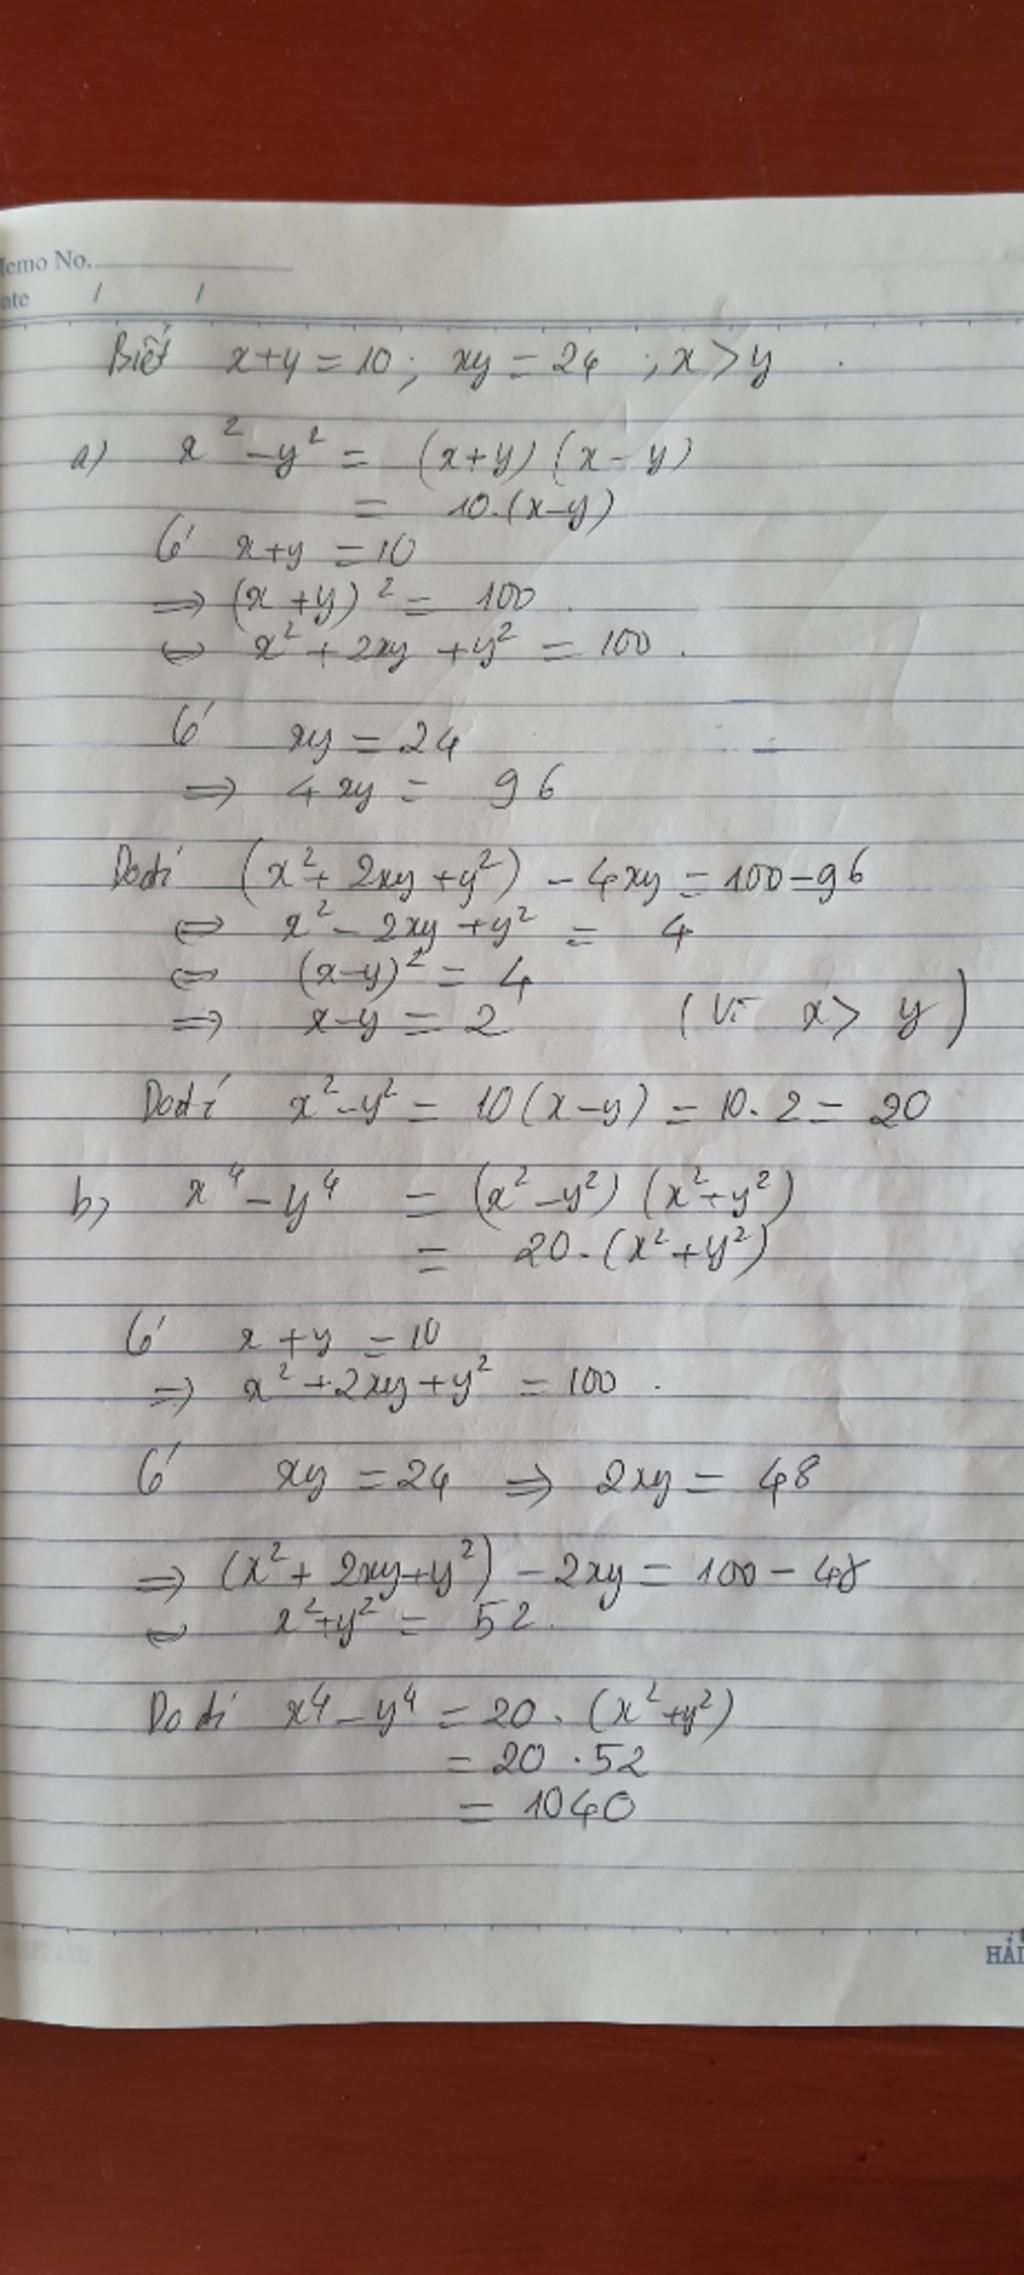 emo No.
ate / /
Biết x+y=10; xy=24 ; x>y.
a) x²-y² = (x+y)(x-y)
= 10.(x-y)
Có x+y=10
=> (x+y)² = 100.
<=> x²+2xy+y² = 100.
Có xy=24
=> 4xy = 96
Do đó (x²+2xy+y²) - 4xy = 100-96
<=> x²-2xy+y² = 4
<=> (x-y)² = 4
=> x-y = 2 (Vì x>y)
Do đó x²-y² = 10(x-y) = 10.2 = 20
b) x⁴-y⁴ = (x²-y²)(x²+y²)
= 20.(x²+y²)
Có x+y=10
=> x²+2xy+y² = 100.
Có xy=24 => 2xy = 48
=> (x²+2xy+y²) - 2xy = 100-48
<=> x²+y² = 52.
Do đó x⁴-y⁴ = 20.(x²+y²)
= 20.52
= 1040
HẢI